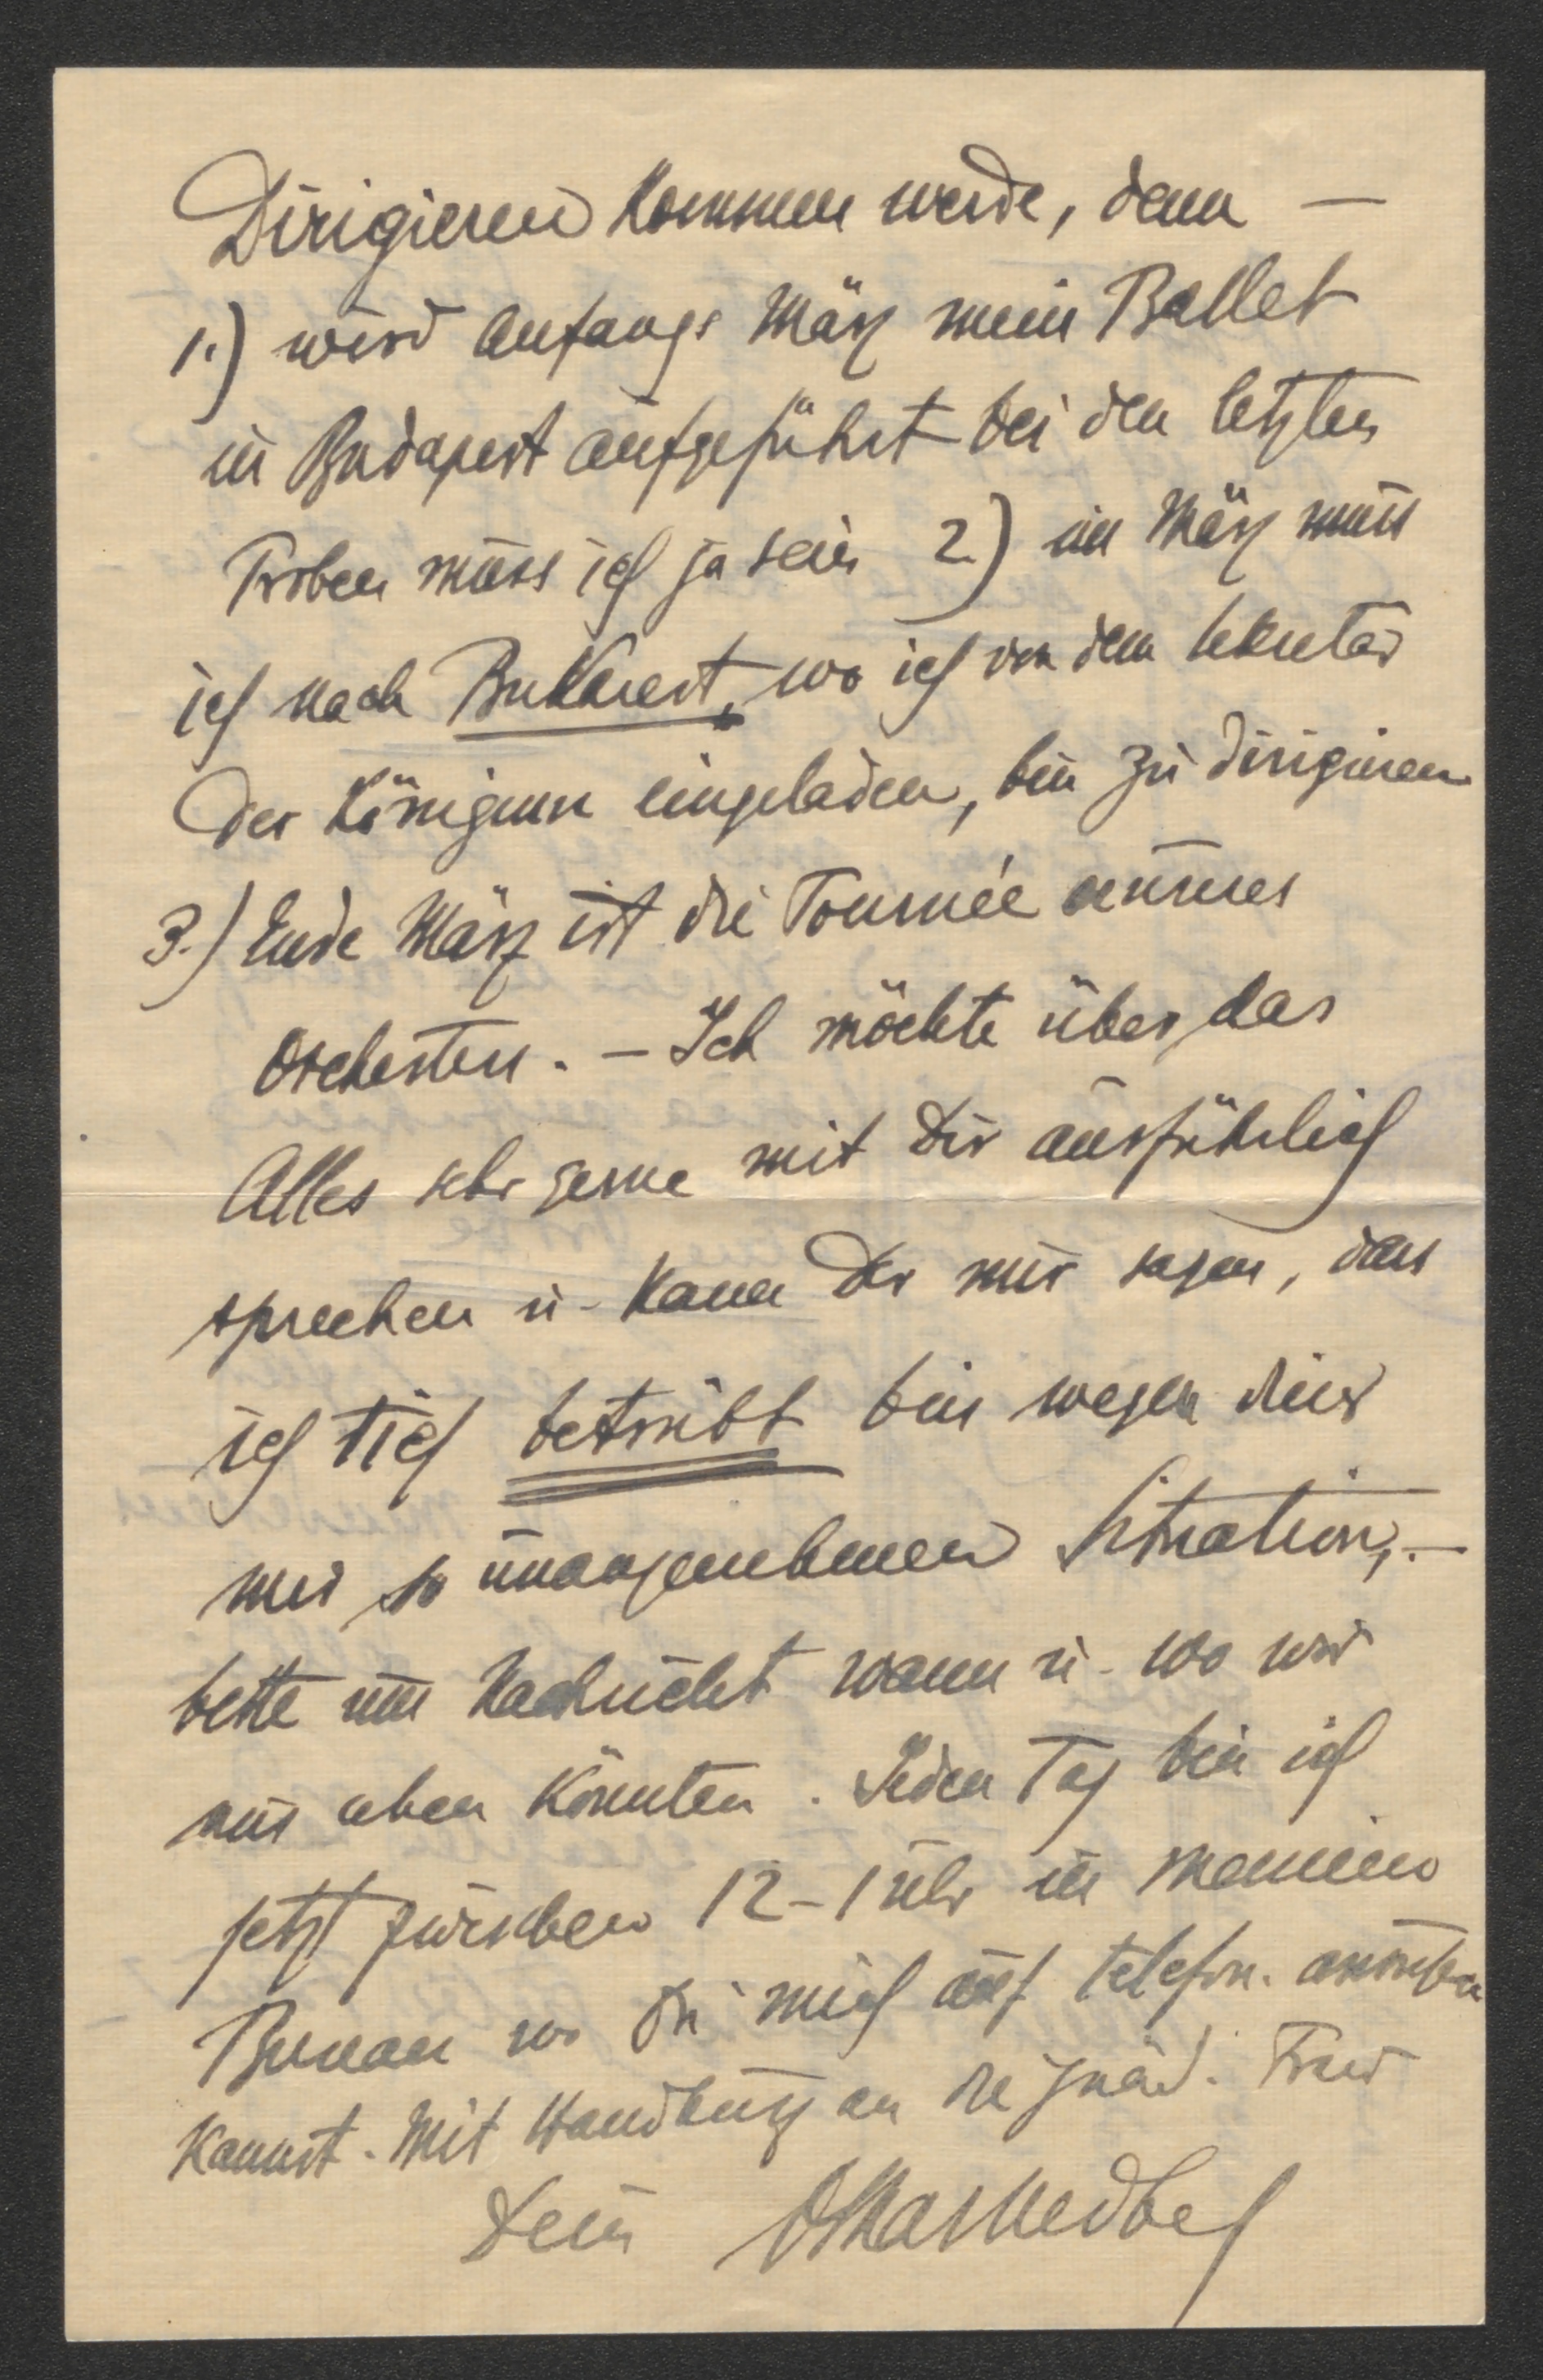 Dirigieren kommen werde, denn —
1.) wird Anfangs März mein Ballet
in Budapest aufgeführt bei den letzten
Proben muss ich ja sein 2.) im März muss
ich nach Bukarest, wo ich von dem Sekretär
der Königinn eingeladen, bin zu dirigieren
3.) Ende März ist die Tournée unseres
Orchesters. — Ich möchte über das
Alles sehr gerne mit Dir ausführlich
sprechen u. kann Dir nur sagen, dass
ich tief betrübt bin wegen dieser
mir so unangenehmen Situation, —
bitte um Nachricht wann u. wo wir
uns sehen könnten. Jeden Tag bin ich
jetzt zwischen 12–1 Uhr in meinem
Bureau wo Du mich auf telefon. anrufen
kannst. Mit Handkuss an die gnäd. Frau
Dein Oskar Nedbal